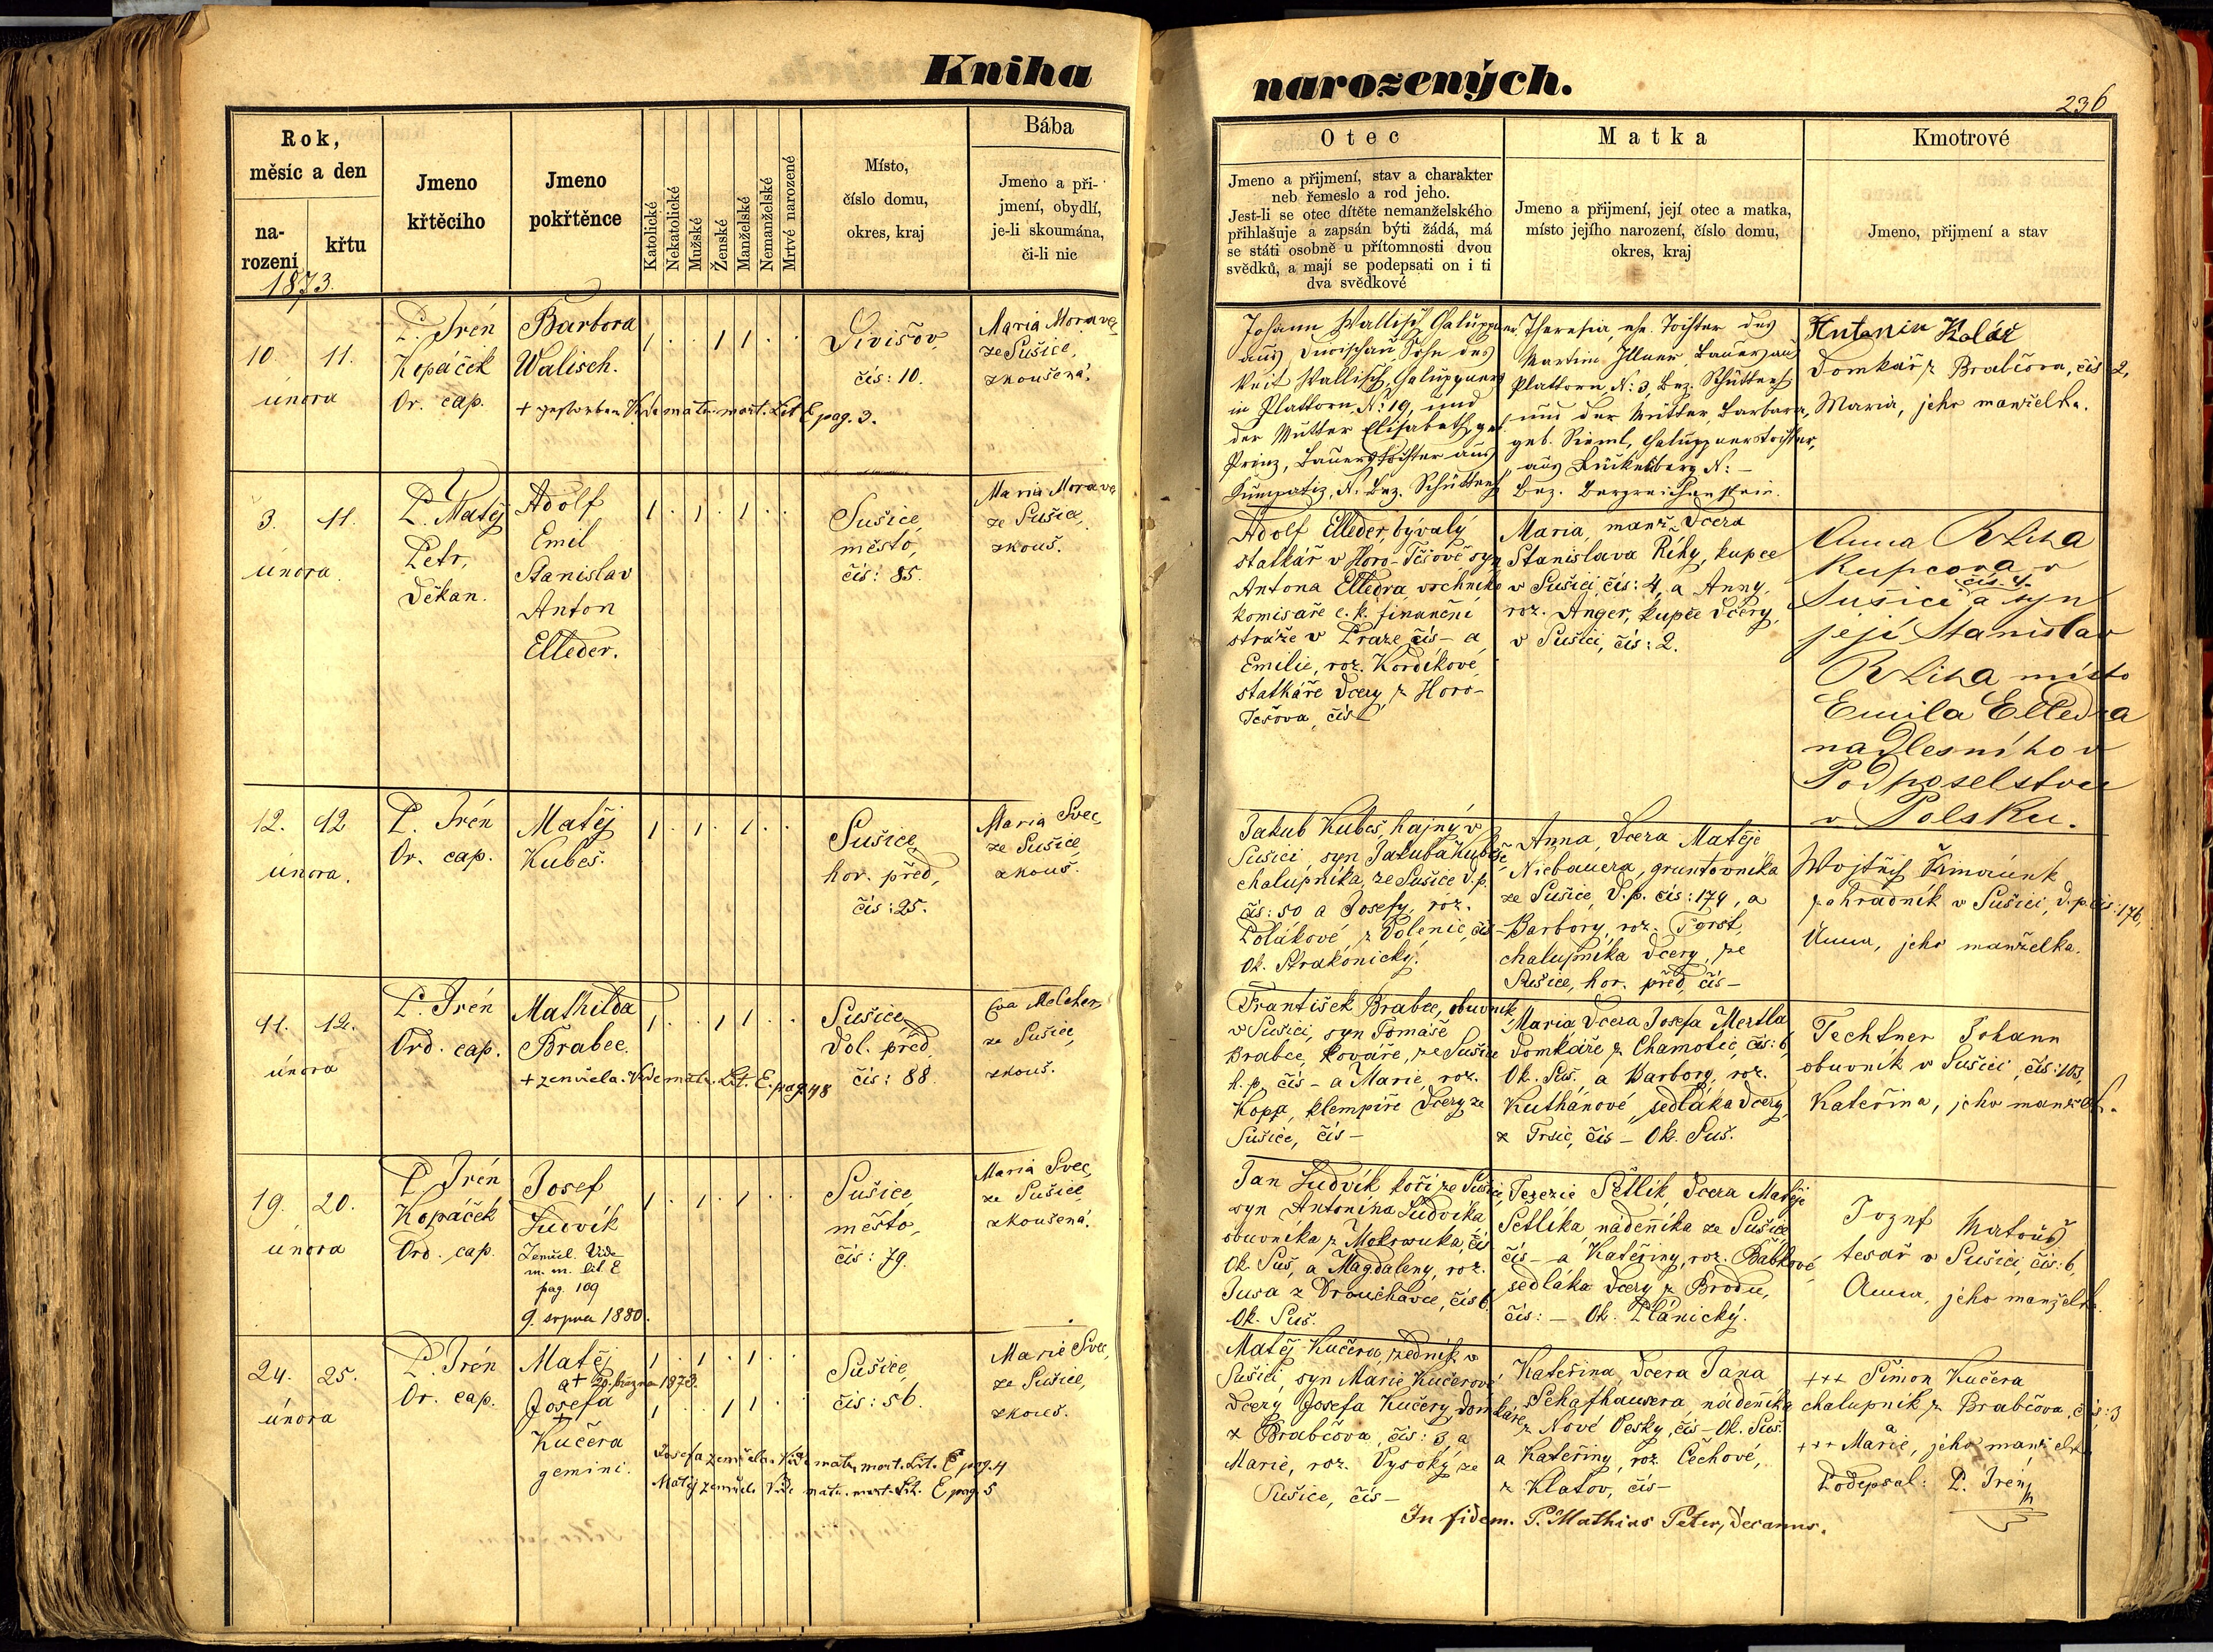 Kniha
Rok,
měsíc a den
na-
rození
křtu
1873.
Jmeno
křtěcího
Jmeno
pokřtěnce
Katolické
Nekatolické
Mužské
Ženské
Manželské
Nemanželské
Mrtvé narozené
Místo,
číslo domu,
okres, kraj
Bába
Jmeno a při-
jmení, obydlí,
je-li skoumána,
či-li nic
10. 11.
února
P. Irén
Kopáček
Or. cap.
Barbora
Walisch.
+ gestorben Vide matr. mort. Lit E pag. 3.
1 . . 1 1 . .
Divišov,
čís: 10.
Maria Moravec
ze Sušice,
zkoušená.
3. 11.
února.
P. Matěj
Petr,
Děkan.
Adolf
Emil
Stanislav
Anton
Elleder.
1 . 1 . 1 . .
Sušice,
město,
čís: 85.
Maria Moravec
ze Sušice,
zkouš.
12. 12
února.
P. Irén
Or. cap.
Matěj
Kubeš.
1 . 1 . 1 . .
Sušice,
hor. před,
čís: 25.
Maria Švec,
ze Sušice
zkouš.
11. 12.
února
P. Irén
Ord. cap.
Mathilda
Brabec.
+ zemřela. Vide matr. Lit. E. pag. 48
1 . . 1 1 . .
Sušice,
Dol. před,
čís: 88.
Eva Melcher,
ze Sušice,
zkouš.
19. 20.
února
P. Irén
Kopáček
Ord. cap.
Josef
Ludvík
Zemřel. Vide
m. m. lit E
pag. 109
9. srpna 1880.
1 . 1 . 1 . .
Sušice,
město,
čís: 79.
Maria Švec,
ze Sušice,
zkoušená.
24. 25.
února
P. Irén
Or. cap.
Matěj
+ 20. března 1873.
Josefa
Kučera
gemini.
1 . 1 . 1 . .
1 . . 1 1 . .
Josefa zemřela. Vide matr. mort. Lit. E pag. 4
Matěj zemřel Vide matr. mort. Lit. E pag. 5
Sušice,
čís: 56.
Marie Švec,
ze Sušice,
zkouš.
narozených.
236
Otec
Jmeno a přijmení, stav a charakter
neb řemeslo a rod jeho.
Jest-li se otec dítěte nemanželského
přihlašuje a zapsán býti žádá, má
se státi osobně u přítomnosti dvou
svědků, a mají se podepsati on i ti
dva svědkové
Matka
Jmeno a přijmení, její otec a matka,
místo jejího narození, číslo domu,
okres, kraj
Kmotrové
Jmeno, přijmení a stav
Johann Wallisch, Chaluppner
aus Diwischau, Sohn des
Veit Wallisch, Chaluppners
in Plattorn, N: 19, und
der Mutter Elisabeth, geb.
Prinz, Bauerstochter aus
Kumpatiz, N. Bez. Schüttenh
Theresia, ehe. Tochter des
Martin Illner, Bauer aus
Plattorn, N: 3, Bez. Schüttenh
und der Mutter Barbara,
geb. Sieml, Chaluppnerstochter,
aus Duckelsberg N: -
Bez. Bergreichenstein.
Antonin Kolář
Domkář z Brabčova, čís 2,
Maria, jeho manželka.
Adolf Elleder, bývalý
statkář v Horo-Těšově syn
Antona Elledra, vrchního
komisaře c. k. finanční
stráže v Praze, čís - a
Emilie, roz. Kordíkové
statkáře dcery, z Horo-
Tešova, čís -
Maria, manž. Dcera
Stanislava Říhy, kupce
v Sušici, čís: 4, a Anny,
roz. Anger, kupce dcery,
v Sušici, čís: 2.
Anna Řiha
Kupcova v
čís. 4.
Sušici a syn
její Stanislav
Řiha místo
Emila Elledra
nadlesního v
Podposelstvu
v Polsku.
Jakub Kubeš, hajný v
Sušici, syn Jakuba Kubeše,
chalupníka, ze Sušice d. p.
čís: 50 a Josefy, roz.
Polákové, z Volenic, čís -
Ok. Strakonický.
Anna, Dcera Matěje
Niebauera, gruntovníka
ze Sušice, D. p. čís: 174, a
Barbory, roz. Forst,
chalupníka dcery, ze
Sušice, hor. před, čís -
zahradník v Sušici, D. p. čís: 176,
Anna, jeho manželka.
František Brabec, obuvník
v Sušici, syn Tomáše
Brabce, kováře, ze Sušice
h. p. čís - a Marie, roz.
Kopp, klempíře dcery ze
Sušice, čís -
Maria, Dcera Josefa Mertla
Domkáře z Chamotic, čís: 6,
Ok. Suš. a Barbory, roz.
Kuthanové, sedláka dcery,
z Trsic, čís - Ok. Suš.
Techtner Johann
obuvník v Sušici, čís: 103,
Kateřina, jeho manžel.
Jan Ludvík, kočí ze Sušice,
syn Antonína Ludvíka,
obuvníka z Mokrosuka, čís
Ok. Suš, a Magdaleny, roz.
Jusa z Drouchavce, čís 6.
Ok. Suš.
Terezie Šetlík, Dcera Matěje
Šetlíka nádeníka ze Sušice
čís - a Kateřiny, roz. Babkové,
sedláka dcery z Brodu,
čís: - Ok. Plánický.
Josef Matouš
tesař v Sušici, čís: 6,
Anna, jeho manželka.
Matěj Kučera, zedník v
Sušici, syn Marie Kučerové
Dcery Josefa Kučery, domkáře
z Brabčova, čís: 3, a
Marie, roz. Vysoký, ze
Sušice, čís -
Kateřina, Dcera Jana
Schafhausera, nádeníka
z Nové Vesky, čís - Ok. Suš.
a Kateřiny, roz. Čechové,
z Klatov, čís -
+++ Šimon Kučera
chalupník z Brabčova, čís: 3
a
+++ Marie, jeho manželka
Podepsal: P. Irén
In fidem. P. Mathias Peter, Decanus.